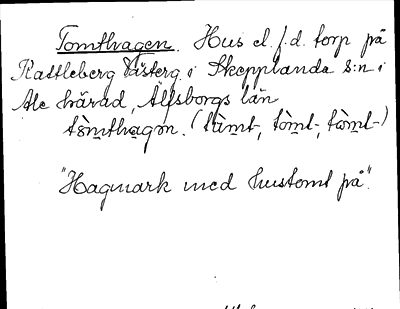 Tomthagen. Hus el. f.d. torp på
Kattleberg Västerg. i Skepplanda s:n i
Ale härad, Älfsborgs län
tòmthagɘn. (tàmt-, tòmt-, tòmt-)
"Hagmark med hustomt på".